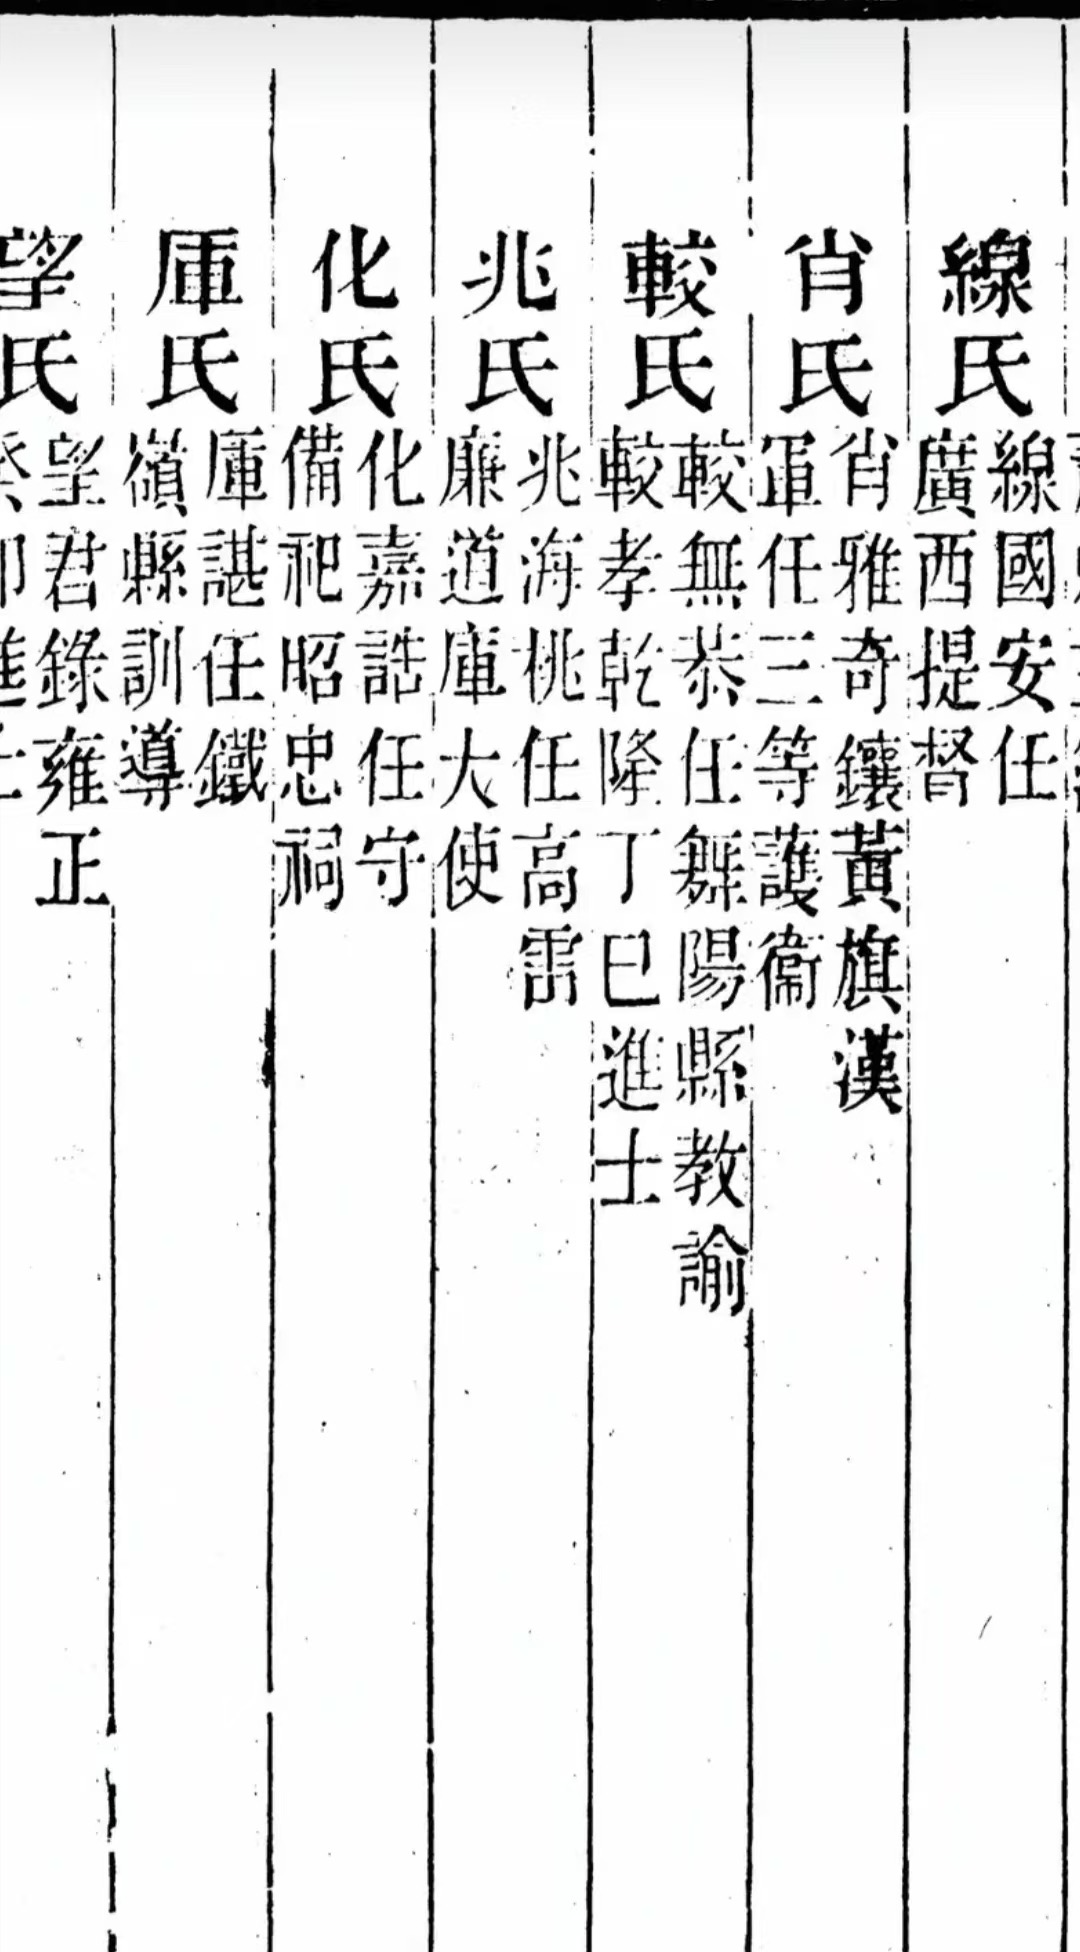 線氏
線國安任
廣西提督
肖氏
肖雅奇鑲黃旗漢
軍任三等護衞
較氏
較無恭任舞陽縣教諭
較孝乾隆丁巳進士
兆氏
兆海桃任高雷
廉道庫大使
化氏
化嘉誥任守
備祀昭忠祠
庫氏
庫諶任鐵
嶺縣訓導
望氏
望君錄雍正